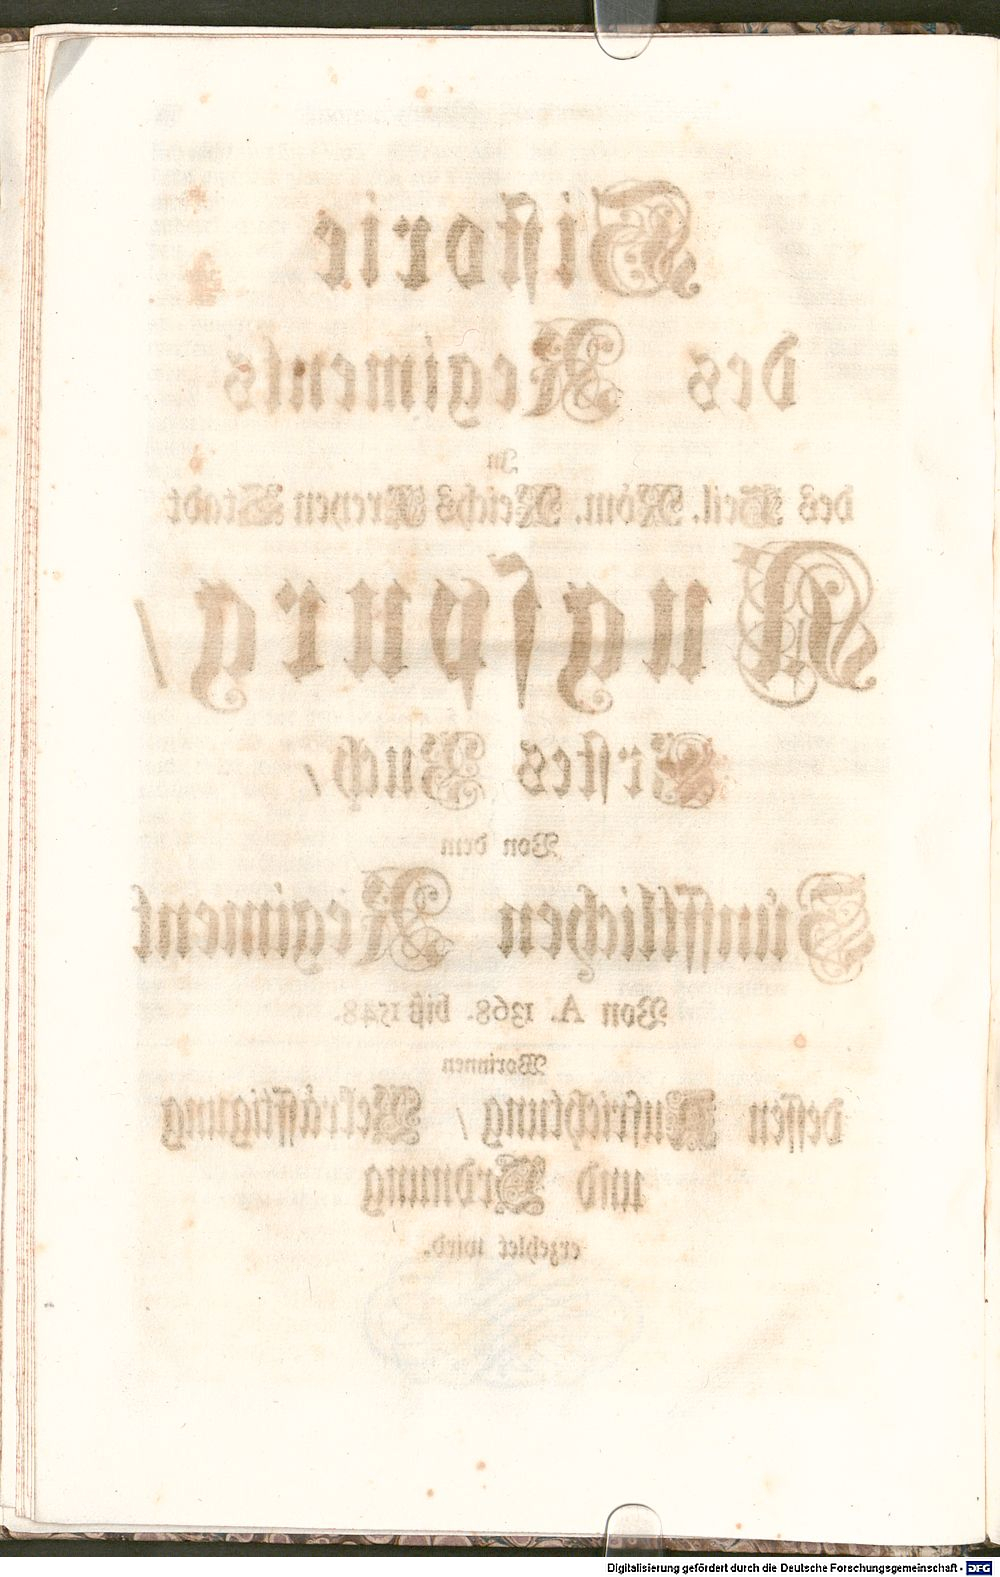 Historie
des Regiments
In
des Heil. Röm. Reichs Freyen Stadt
Augspurg /
Erstes Buch /
Von dem
Zünfftlichen Regiment
Von A. 1368. biß 1548.
Worinnen
dessen Aufrichtung / Bekräfftigung
und Ordnung
erzehlet wird.
Digitalisierung gefördert durch die Deutsche Forschungsgemeinschaft - DFG